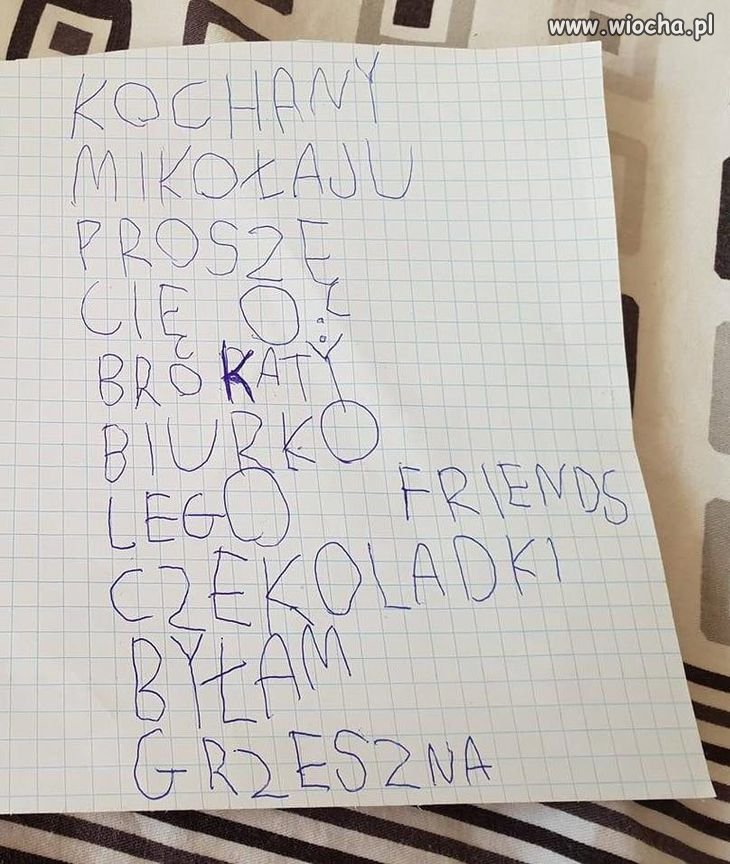 www.wiocha.pl
KOCHANY
MIKOŁAJU
PROSZĘ
CIĘ O:
BROKATY
BIURKO
LEGO FRIENDS
CZEKOLADKI
BYŁAM
GRZESZNA